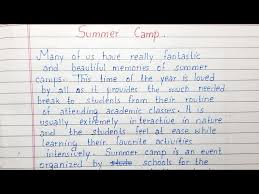 Summer Camp.
Many of us have really fantastic
and beautiful memories of summer
camps. This time of the year is loved
by all as it provides the much needed
break to students from their routine
of attending academic classes. It is
usually extremely interactive in nature
and the students feel at ease while
learning their favorite activities
intensively. Summer camp is an event
organized by schools for the